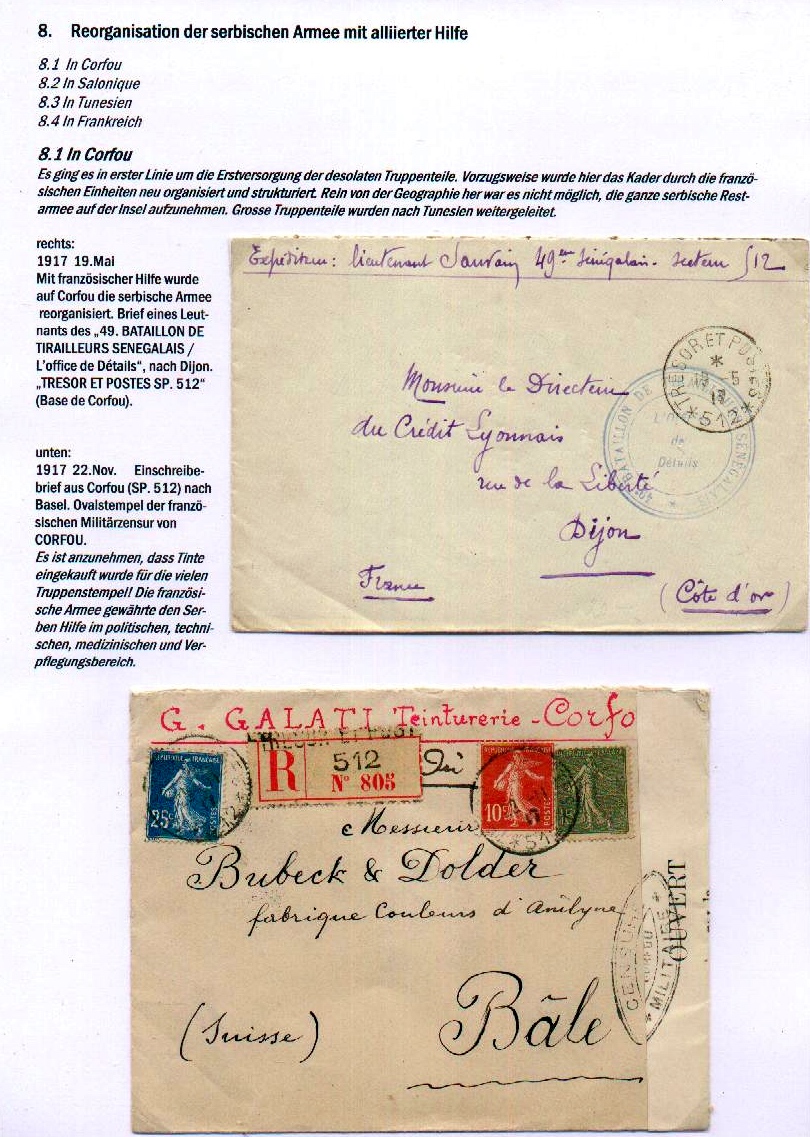 8. Reorganisation der serbischen Armee mit alliierter Hilfe
8.1 In Corfou
8.2 In Salonique
8.3 In Tunesien
8.4 In Frankreich
8.1 In Corfou
Es ging es in erster Linie um die Erstversorgung der desolaten Truppenteile. Vorzugsweise wurde hier das Kader durch die franzö-
sischen Einheiten neu organisiert und strukturiert. Rein von der Geographie her war es nicht möglich, die ganze serbische Rest-
armee auf der Insel aufzunehmen. Grosse Truppenteile wurden nach Tunesien weitergeleitet.
rechts:
1917 19.Mai
Mit französischer Hilfe wurde
auf Corfou die serbische Armee
reorganisiert. Brief eines Leut-
nants des „49. BATAILLON DE
TIRAILLEURS SENEGALAIS /
L'office de Détails“, nach Dijon.
„TRESOR ET POSTES SP. 512“
(Base de Corfou).
unten:
1917 22.Nov. Einschreibe-
brief aus Corfou (SP. 512) nach
Basel. Ovalstempel der franzö-
sischen Militärzensur von
CORFOU.
Es ist anzunehmen, dass Tinte
eingekauft wurde für die vielen
Truppenstempel! Die französi-
sche Armee gewährte den Ser-
ben Hilfe im politischen, techni-
schen, medizinischen und Ver-
pflegungsbereich.
Expéditeur: lieutenant Sauvain 49eme Sénégalais - secteur 512
TRESOR ET POSTES
5
17
*512*
BATAILLON DE SENEGALAIS
de
Détails
Monsieur le Directeur
du Crédit Lyonnais
rue de la Liberté
Dijon
France
(Côte d'or)
G. GALATI Teinturerie - Corfo
TRESOR ET POST
R
512
N° 805
25c
POSTES
10c
POSTES
*512*
Messieurs
Bubeck & Dolder
fabrique Couleurs d'Anilyne
Bâle
(Suisse)
CENSURE
MILITAIRE
OUVERT